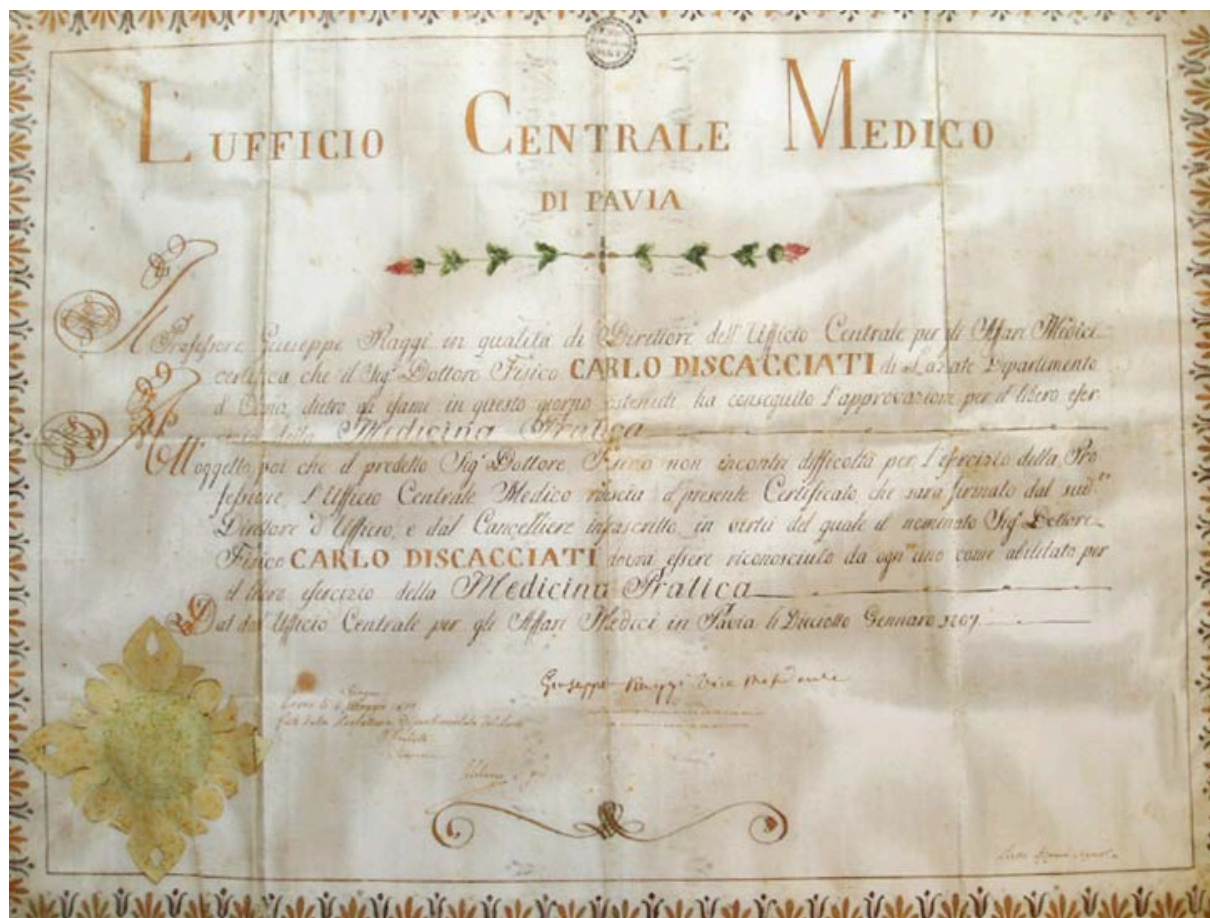 L'UFFICIO CENTRALE MEDICO
DI PAVIA
Il Professore Giuseppe Raggi in qualità di Direttore dell'Ufficio Centrale per gli Affari Medici
certifica che il Sigr Dottore Fisico CARLO DISCACCIATI di Lazate Dipartimento
dietro gli esami in questo giorno sostenuti, ha conseguito l'approvazione per il libero eser
della Medicina Pratica
oggetto poi che il predetto Sigr Dottore Fisico non incontri difficoltà per l'esercizio della Pro
fessione, L'Ufficio Centrale Medico rilascia il presente Certificato, che sarà firmato dal sudto
Direttore d'Ufficio, e dal Cancelliere infrascritto, in virtù del quale il nominato Sigr Dottore
Fisico CARLO DISCACCIATI dovrà essere riconosciuto da ogn'uno come abilitato per
il libero esercizio della Medicina Pratica
Dal detto Ufficio Centrale per gli Affari Medici in Pavia li Dieciotto Gennaro
Giuseppe Raggi